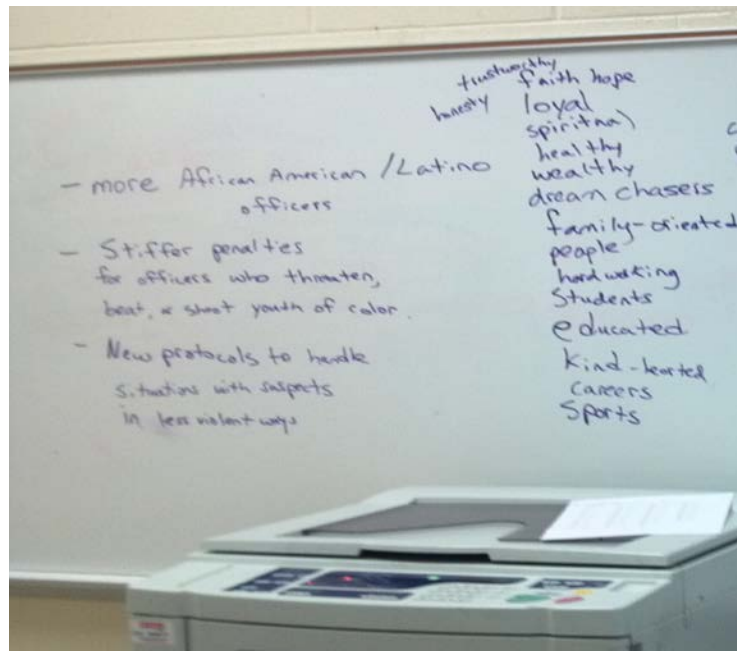 - more African American / Latino
officers
- Stiffer penalties
for officers who threaten,
beat, or shoot youth of color.
- New protocols to handle
situations with suspects
in less violent ways
trustworthy
honesty
faith hope
loyal
spiritual
healthy
wealthy
dream chasers
family-oriented
people
hardworking
Students
educated
Kind-hearted
careers
Sports